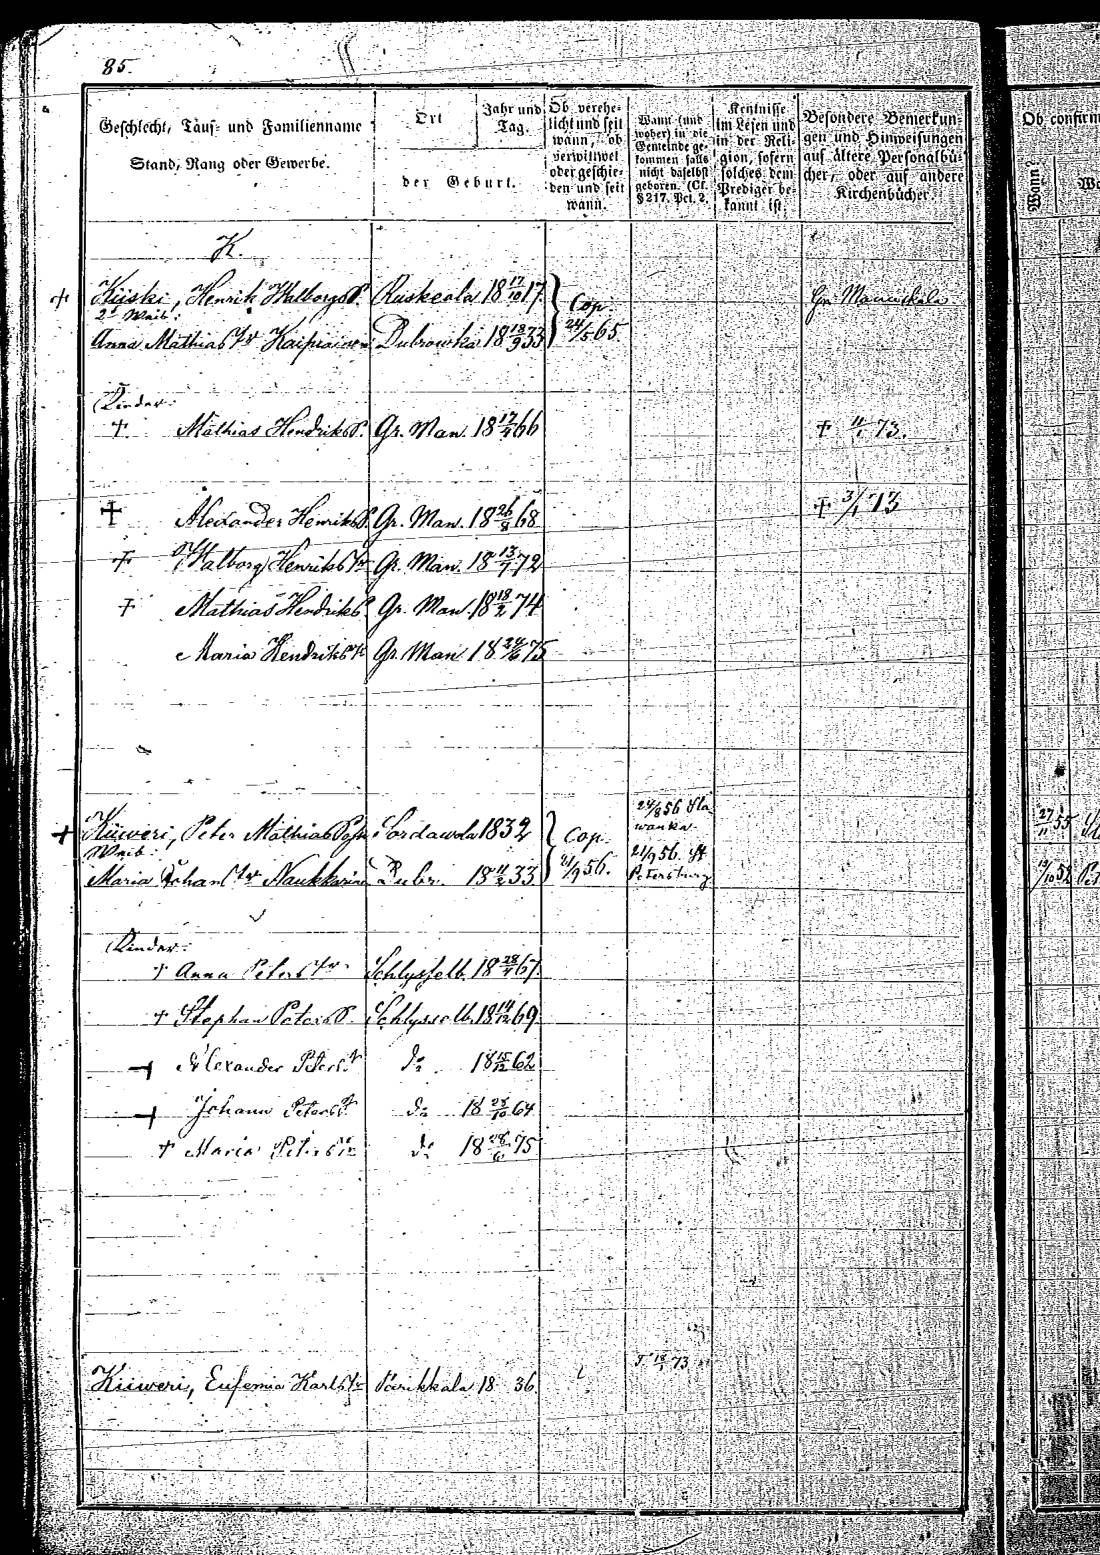 85.
Geschlecht, Tauf- und Familienname
Stand, Rang oder Gewerbe.
Ort
Jahr und
Tag.
der Geburt.
Ob verehe-
licht und seit
wann, ob
verwittwet
oder geschie-
den und seit
wann.
Wann (und
woher) in die
Gemeinde ge-
kommen falls
nicht daselbst
geboren. (Cf.
§ 217. Pct. 2.
Kentnisse
im Lesen und
in der Reli-
gion, sofern
solches dem
Prediger be-
kannt ist.
Besondere Bemerkun-
gen und Hinweisungen
auf ältere Personalbü-
cher, oder auf andere
Kirchenbücher.
Ob confirm
Wann?
K.
+ Kiiski, Henrik WalborgsS. Ruskeala 18 17/10 17. Cop. Gr. Mannikala
2s Weib:
Anna Mathias Tr Kaipiainen Dubrowka 18 18/9 33 24/5 65.
Kinder:
+ Mathias HendriksS. Gr. Man. 18 66 + 73.
+ Alexander HenriksS. Gr. Man. 18 26/8 68 + 3/1 73
+ Walborg Henriks Tr Gr. Man. 18 13/7 72
+ Mathias HendriksS. Gr. Man. 18 18/2 74
Maria Hendriks Tr Gr. Man 18 24/6 75
24/8 56 Sla
wanka
+ Kiiweri, Peter Mathias Sordawala 1832 Cop. 27/11 55
Weib: 21/9 56 St
Maria Johans Tr Naukkarinen Dubr. 18 33. 21/9 56. Petersburg
Kinder:
+ Anna Peters Tr Schlysselb. 18 28 67.
+ Stephan PetersS. Schlysselb. 18 14/12 69.
+ Alexander Peters do 18 15/12 62
+ Johann Peters do 18 64
+ Maria Peters Tr do 18 28/6 75
73
Kiiweri, Eufemia Karls Tr Parikkala 18 36.